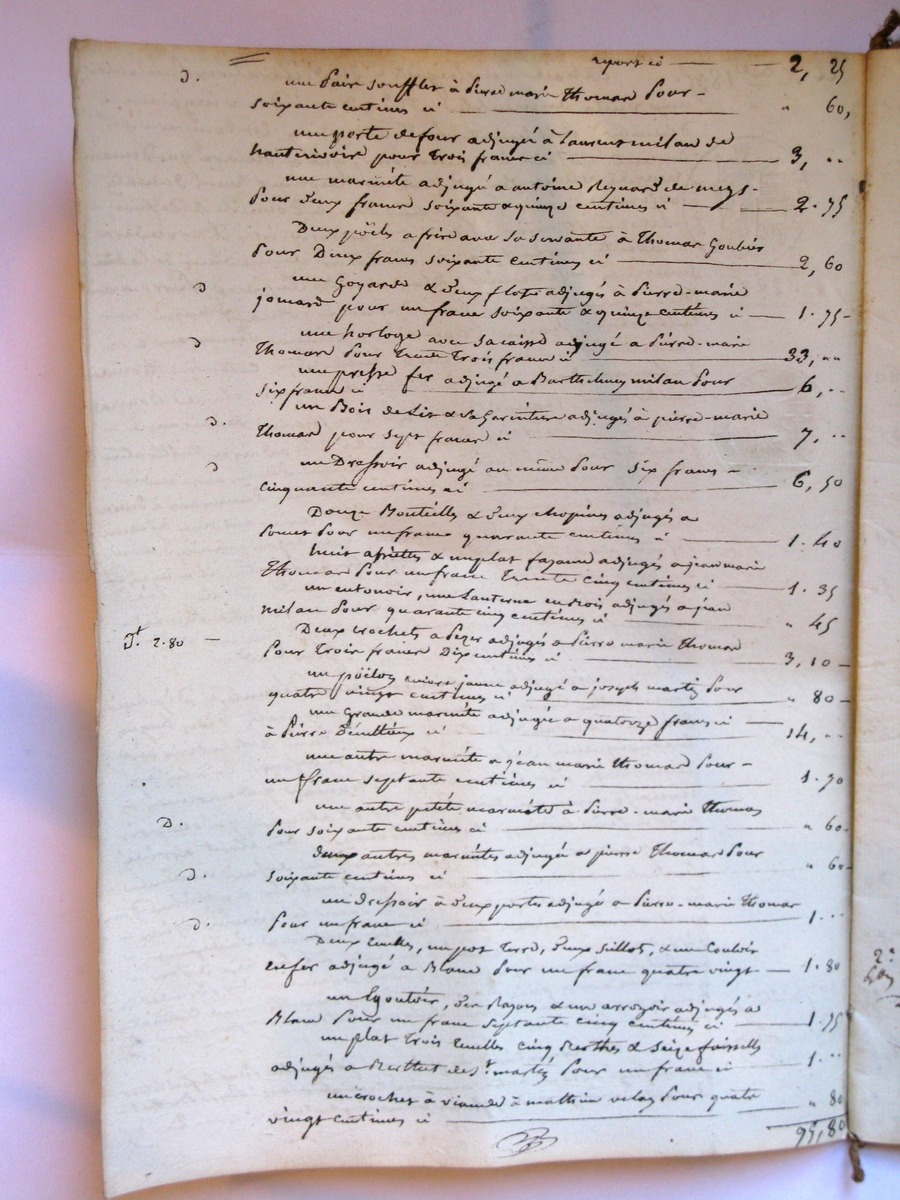 report ci — 2, 25
D. une pair soufflet à Pierre marie Thomas Pour -
soixante centimes ci — " 60,
une porte de four adjugé à Laurent milan de
pour trois francs ci — 3, "
une marmite adjugé a antoine Reynard de meys -
Pour deux francs soixante & quinze centimes ci — 2.75
Deux poëles a frire avec sa servante à Thomas
Pour Deux francs soixante centimes ci — 2, 60
D une Goyarde & deux adjugés à Pierre-marie
pour un franc soixante & quinze centimes ci — 1.75 -
D une horloge avec sa caisse adjugé a Pierre-marie
Thomas Pour trente trois francs ci — 33, "
une presse fer adjugé a Barthelemy milan Pour
six francs ci — 6, "
un Bois de Lit & sa Garniture adjugés à pierre-marie
D. Thomas pour sept francs ci — 7, "
D un Dressoir adjugé au même Pour six francs -
cinquante centimes ci — 6, 50
Douze Bouteilles & deux chopines adjugés a
Pour un franc quarante centimes ci — 1.40
huit assiettes & un plat adjugés a jean marie
Thomas Pour un franc trente cinq centimes ci — 1.35
un entonoir, une Lanterne en bois adjugés a jean
milan Pour quarante cinq centimes ci — " 45
Deux crochets a Pezer adjugés a Pierre marie Thomas
2.80 — Pour Trois francs Dix centimes ci — 3,10 -
un jaune adjugé a joseph Pour
quatre vingt centimes ci — " 80 -
une Grande marmite adjugée a quatorze francs ci —
à Pierre ci — 14, "
une autre marmite a jean marie Thomas Pour -
un franc septante centimes ci — 1.70
une autre petite marmite à Pierre-marie Thomas
D. Pour soixante centimes ci — " 60 -
deux autres marmites adjugés a pierre Thomas Pour
D. soixante centimes ci — " 60 -
un dressoir à deux portes adjugé a Pierre-marie Thomas
D. Pour un franc ci — 1 "
Deux , un pot terre, deux , & un Couloir
en fer adjugé a Blanc Pour un franc quatre vingt — 1.80
un Egoutoir, & une arrozoir adjugés a
Blanc Pour un franc septante cinq centimes ci — 1.75
un plat trois cinq & seize
adjugés a de St. Pour un franc ci — 1 "
un crochet à viande à mathieu Pour quatre
vingt centimes ci — " 80
95,80